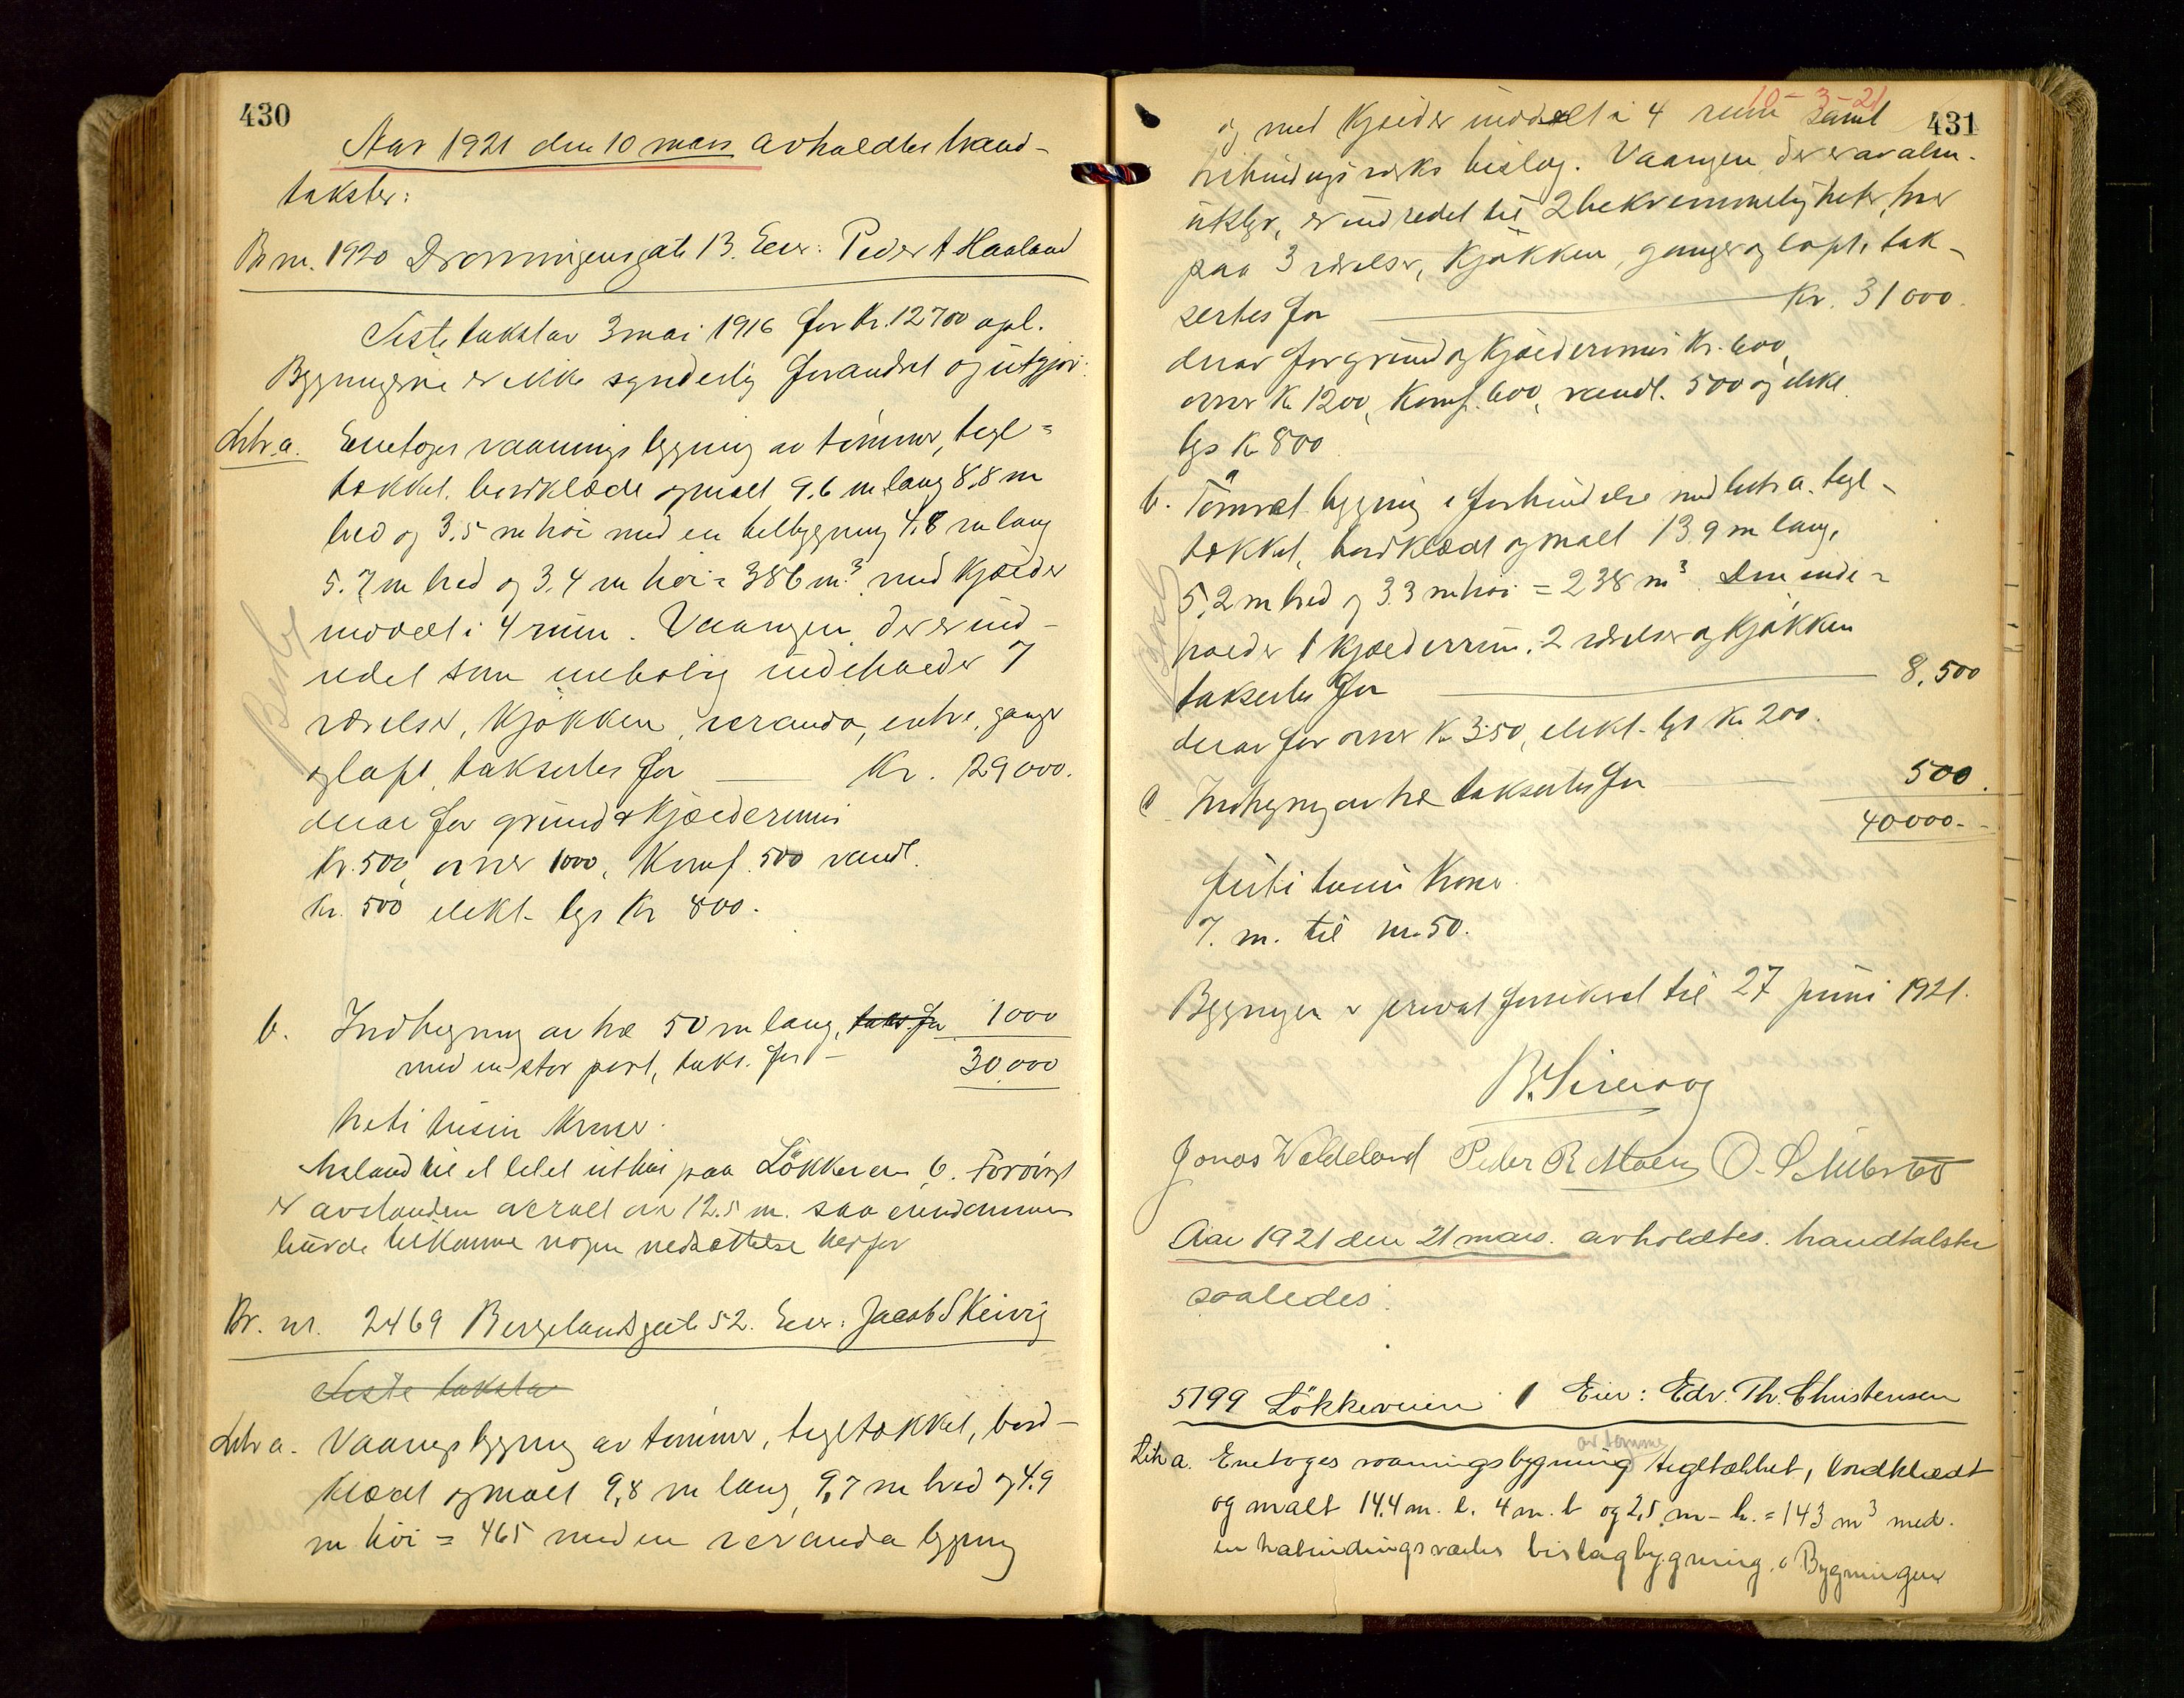 430
Aar 1921 den 10 mars avholdtes brand-
takster:
Br nr. 1920 Dronningensgate 13. Eier: Peder A Haaland
Siste takst av 3 mai 1916 for Kr. 12700 opl.
Bygningerne er ikke synderlig forandret og utgjør:
Litr. a. Enetages vaaningsbygning av tømmer, tegl-
tækket, bordklædt og malt 9,6 m lang 8,8 m
bred og 3,5 m høi med en tilbygning 4,8 m lang
5.7 m bred og 3,4 m høi = 386 m³. med kjælder
inddelt i 4 rum. Vaaningen der er ind-
redet som enebolig indeholder 7
værelser, kjøkken, veranda, entre, gange
og loft, taksertes for Kr. 29000.
derav for grund & kjælderrum
Kr. 500, ovner 1000, Komf. 500 vandl.
Kr. 500 elekt. lys Kr 800.
b. Indhegning av træ 50 m lang, taks for 1000
med en stor port, taks. for 30,000
Treti tusin Kroner.
til et litet uthus paa Løkkeveien 6. Forøvrigt
er avstanden overalt over 12.5 m. saa eiendommen
burde tilkomme nogen nedsættelse herfor
Br. nr. 2469 Bergelandsgate 52. Eier: Jacob Skeivig
Siste takst av
Litr a. Vaaningsbygning av tømmer, tegltækket, bord-
klædt og malt 9,8 m lang, 9,7 m bred og 4.9
m høi = 465 med en veranda bygning
10-3-21
431
og med kjælder inddelt i 4 rum samt
utbindingsverks bislag. Vaaningen der er av alm.
utstyr, er indredet til 2 bekvemmeligheter, hver
paa 3 værelser, kjøkken, gange og loft, tak-
sertes for Kr. 31000.
derav for grund og kjælderrum Kr. 600,
ovner Kr 1200, Komf. 600, vandl. 500 og elekt
lys Kr 800
b. Tømret bygning i forbindelse med litr a. tegl-
tækket, bordklædt og malt 13,9 m lang,
5,2 m bred og 3.3 m høi = 238 m³. Den inde-
holder 1 kjælderrum, 2 værelser og kjøkken
taksertes for 8,500
derav for ovner Kr 350, elekt. lys Kr 200.
c Indhegning av træ taksertes for 500.
40000.-
Firti tusin Kroner.
7. m. til nr. 50.
Bygningen er privat forsikret til 27 juni 1921.
Jonas Waldeland Peder R Moen
Aar 1921 den 21 mars. avholdtes. brandtakster
saaledes.
5199 Løkkeveien 1 Eier: Edv. Th. Christensen
av tømmer
Litr a. Enetages vaaningsbygning tegltækket, bordklædt
og malt 14.4 m. l. 4 m. b og 2,5 m-h. = 143 m³ med.
en utbindingsværks bislagbygning. Bygningen